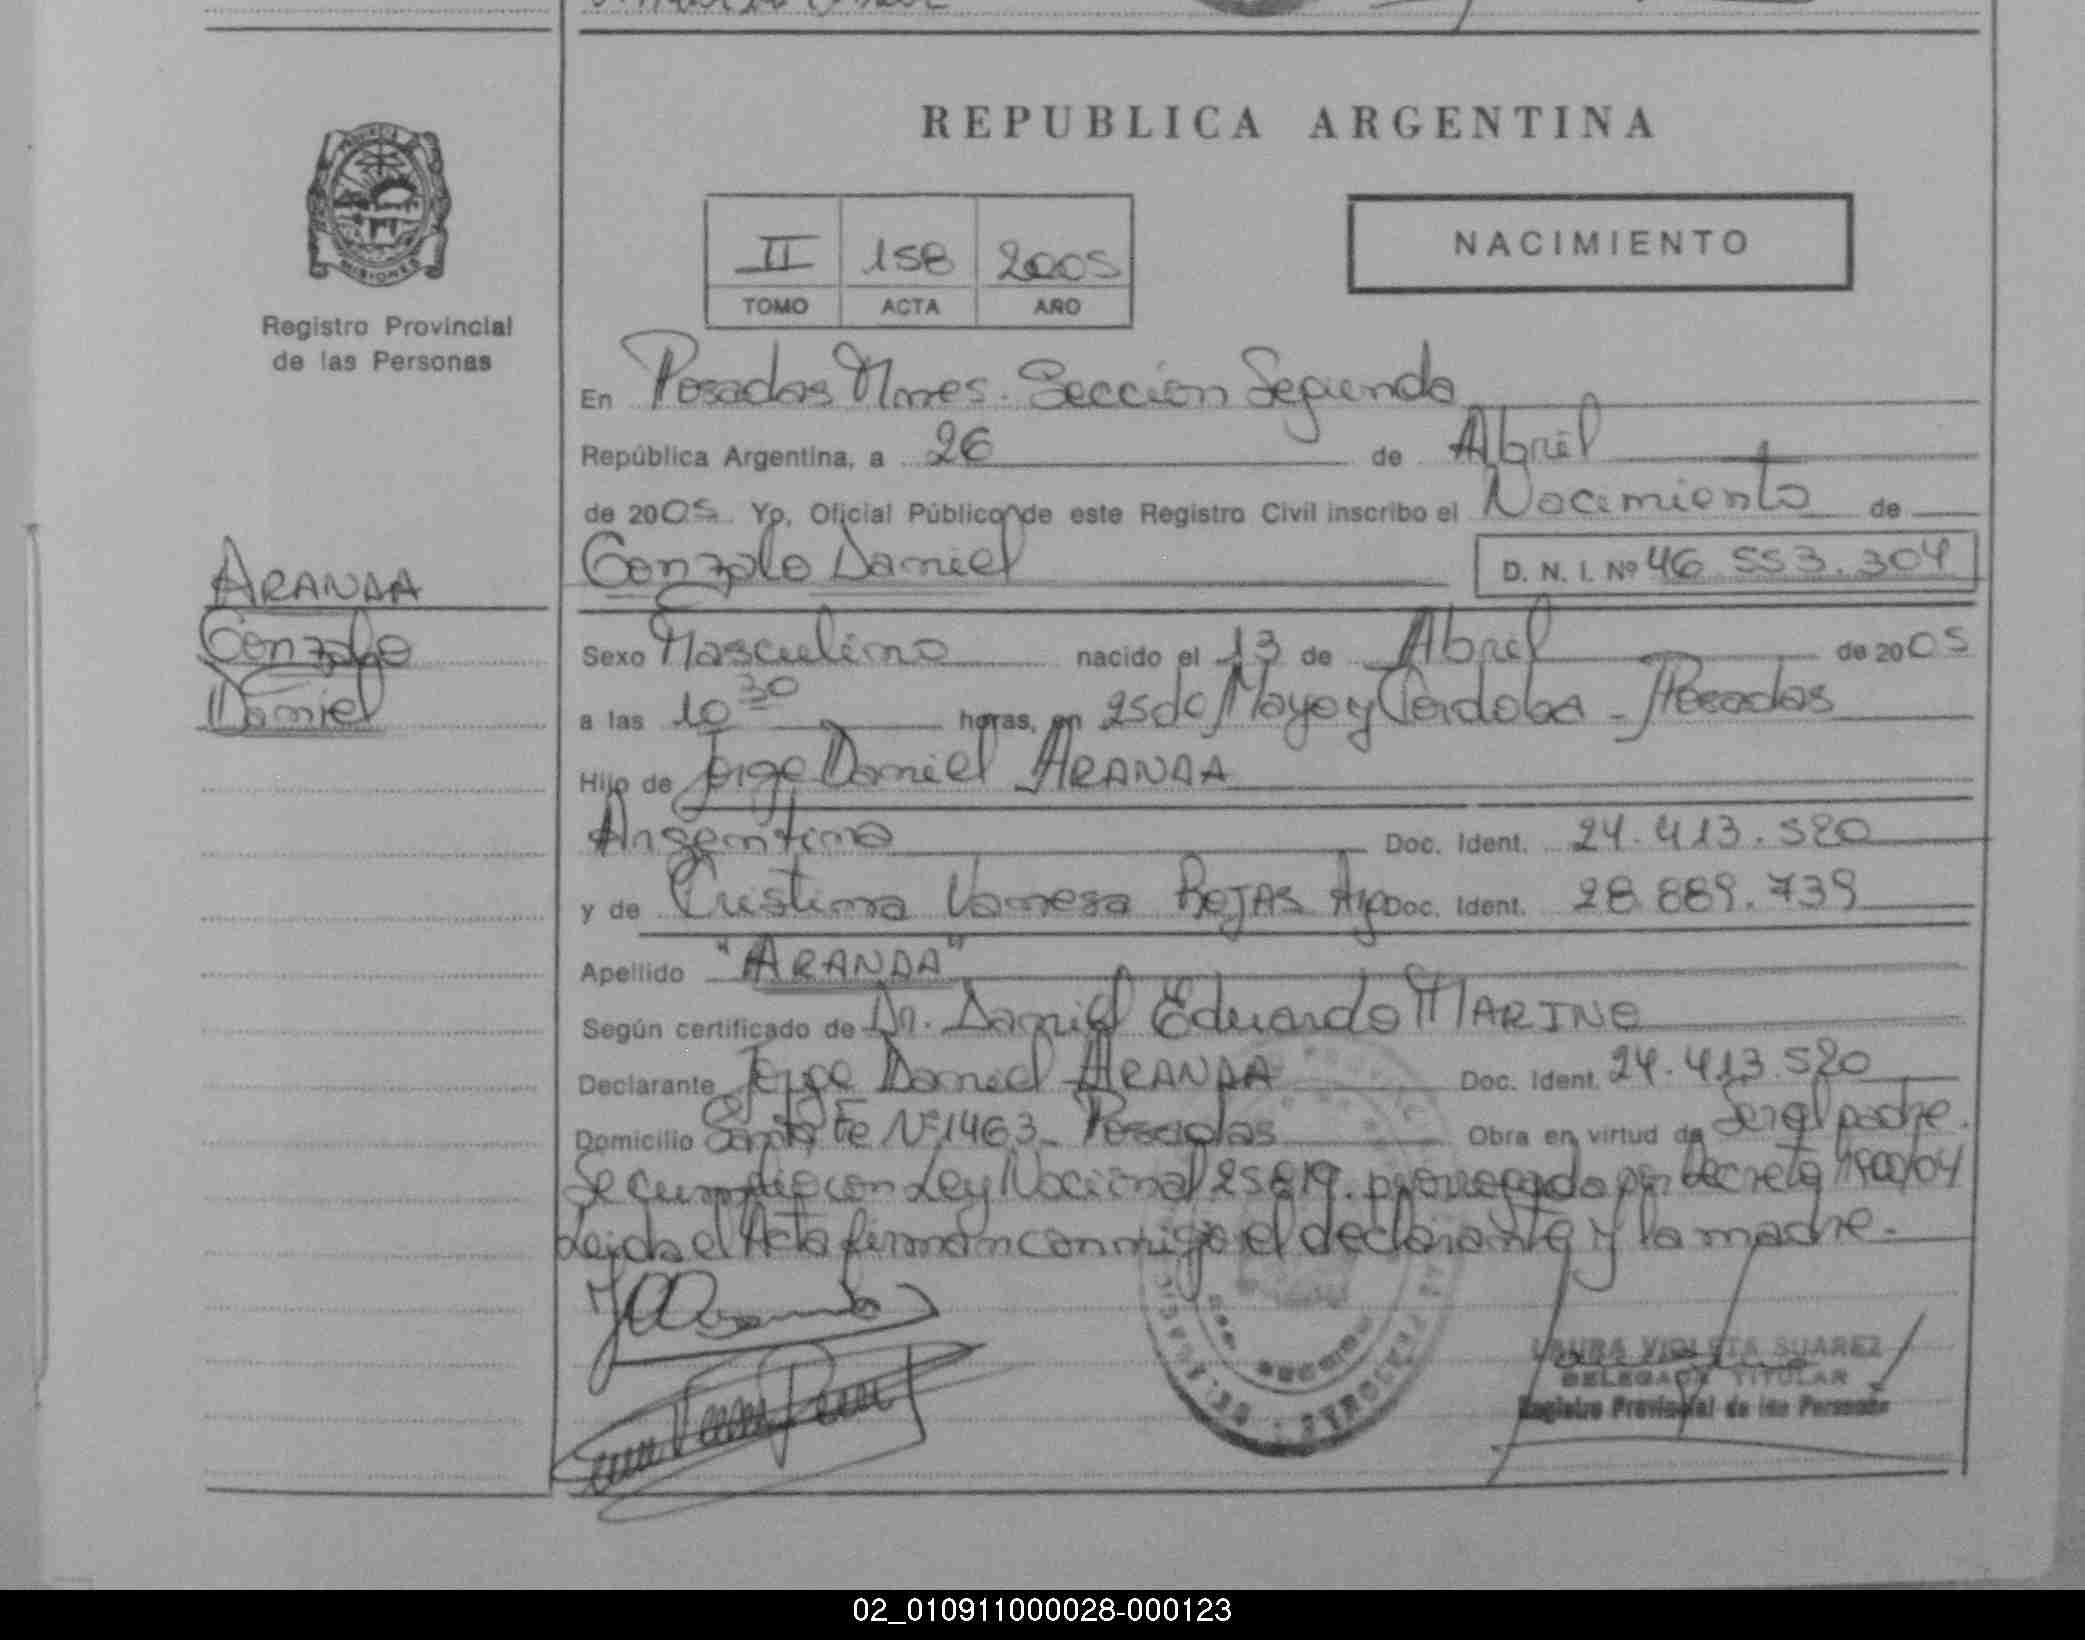 REPUBLICA ARGENTINA
PROVINCIA
MISIONES
Registro Provincial
de las Personas
II 158 2005
TOMO ACTA AÑO
NACIMIENTO
En Posadas Mnes. Sección Segunda
República Argentina, a 26 de Abril
de 2005. Yo, Oficial Público de este Registro Civil inscribo el Nacimiento de
Gonzalo Daniel D. N. I. Nº 46.553.304
ARANDA
Gonzalo
Daniel
Sexo Masculino nacido el 13 de Abril de 2005
a las 10 30 horas, en 25 de Mayo y Cordoba - Posadas
Hijo de Jorge Daniel ARANDA
Argentino Doc. Ident. 24.413.520
y de Cristina Vanesa ROJAS Arg Doc. Ident. 28.889.739
Apellido "ARANDA"
Según certificado de Dr. Daniel Eduardo MARINO
Declarante Jorge Daniel ARANDA Doc. Ident. 24.413.520
Domicilio Santa Fe Nº 1463 - Posadas Obra en virtud de Ser el padre.
Se cumplio con Ley Nacional 25819. prorrogada por Decreto 1900/04
Leida el Acta firman conmigo el declarante y la madre.
LAURA VIOLETA SUAREZ
DELEGADA TITULAR
Registro Provincial de las Personas
02_010911000028-000123